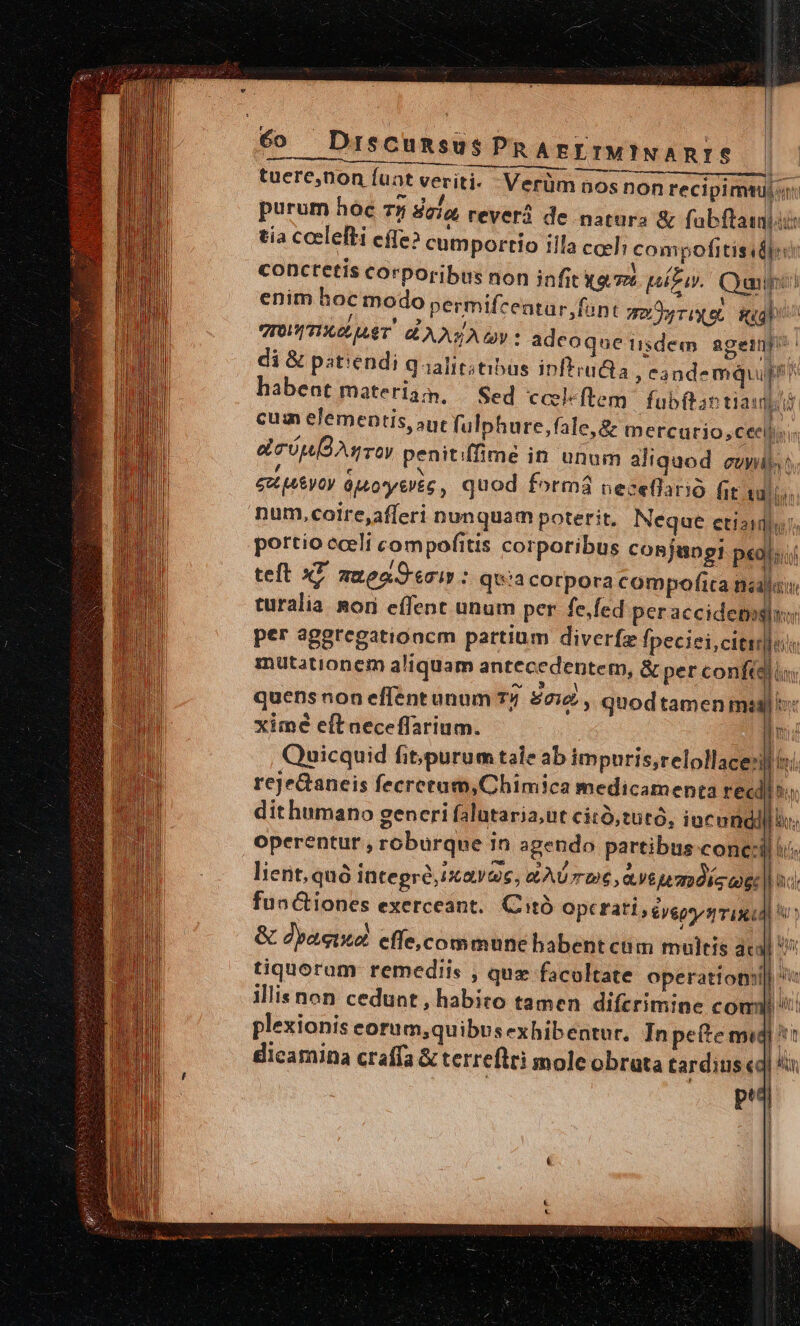 60 DISCURSUS PRAELIMINARIS
tuere,non ſunt veriti. Verùm nos non recipimus
purum hoc τῇ ȣσίᾳ reverâ de natura & ſubſtan
tia cœleſti eſſe? cumportio illa cœli compoſitis
concretis corporibus non inſit κατὰ μίξιν. Quæ
enim hoc modo permiſcentur,ſunt παθητικὰ καὶ
ποιητικὰ μετ' ἀλλήλων: adeoque iisdem agen
di & patiendi qualitatibus inſtructa, eandemque
habent materiam. Sed cœleſtem ſubſtantiam
cum elementis,aut ſulphure,ſale,& mercurio,ceu
ἀσύμβλητον penitiſſimè in unum aliquod
ὁμογενὲς, quod formâ neceſſariò fit
num,coire,aſſeri nunquam poterit. Neque etiam
portio cœli compoſitis corporibus conjungi po
teſt κτ̀ παράθεσιν: quia corpora compoſita na
turalia non eſſent unum per ſe,ſed per accidens
per aggregationem partium diverſæ ſpeciei,citra
mutationem aliquam antecedentem, & per conſe
quens non eſſent unum τῇ ȣσίᾳ, quod tamen ma
ximè eſt neceſſarium.
Quicquid ſit,purum tale ab impuris,relollace
rejectaneis ſecretum,Chimica medicamenta red
dit humano generi ſalutaria,ut citò,tutò, iucundè
operentur, roburque in agendo partibus conci
lient,quò integrè,ἱκανῶς, ἀλύπως, ἀνεμποδίςως
functiones exerceant. Citò operari, ἐνεργητικὰ
& δραςικὰ eſſe,commune habent cum multis
tiquorum remediis, quæ facultate operationis
illis non cedunt, habito tamen diſcrimine com
plexionis eorum,quibus exhibentur. In peſte me
dicamina craſſa & terreſtri mole obruta tardius